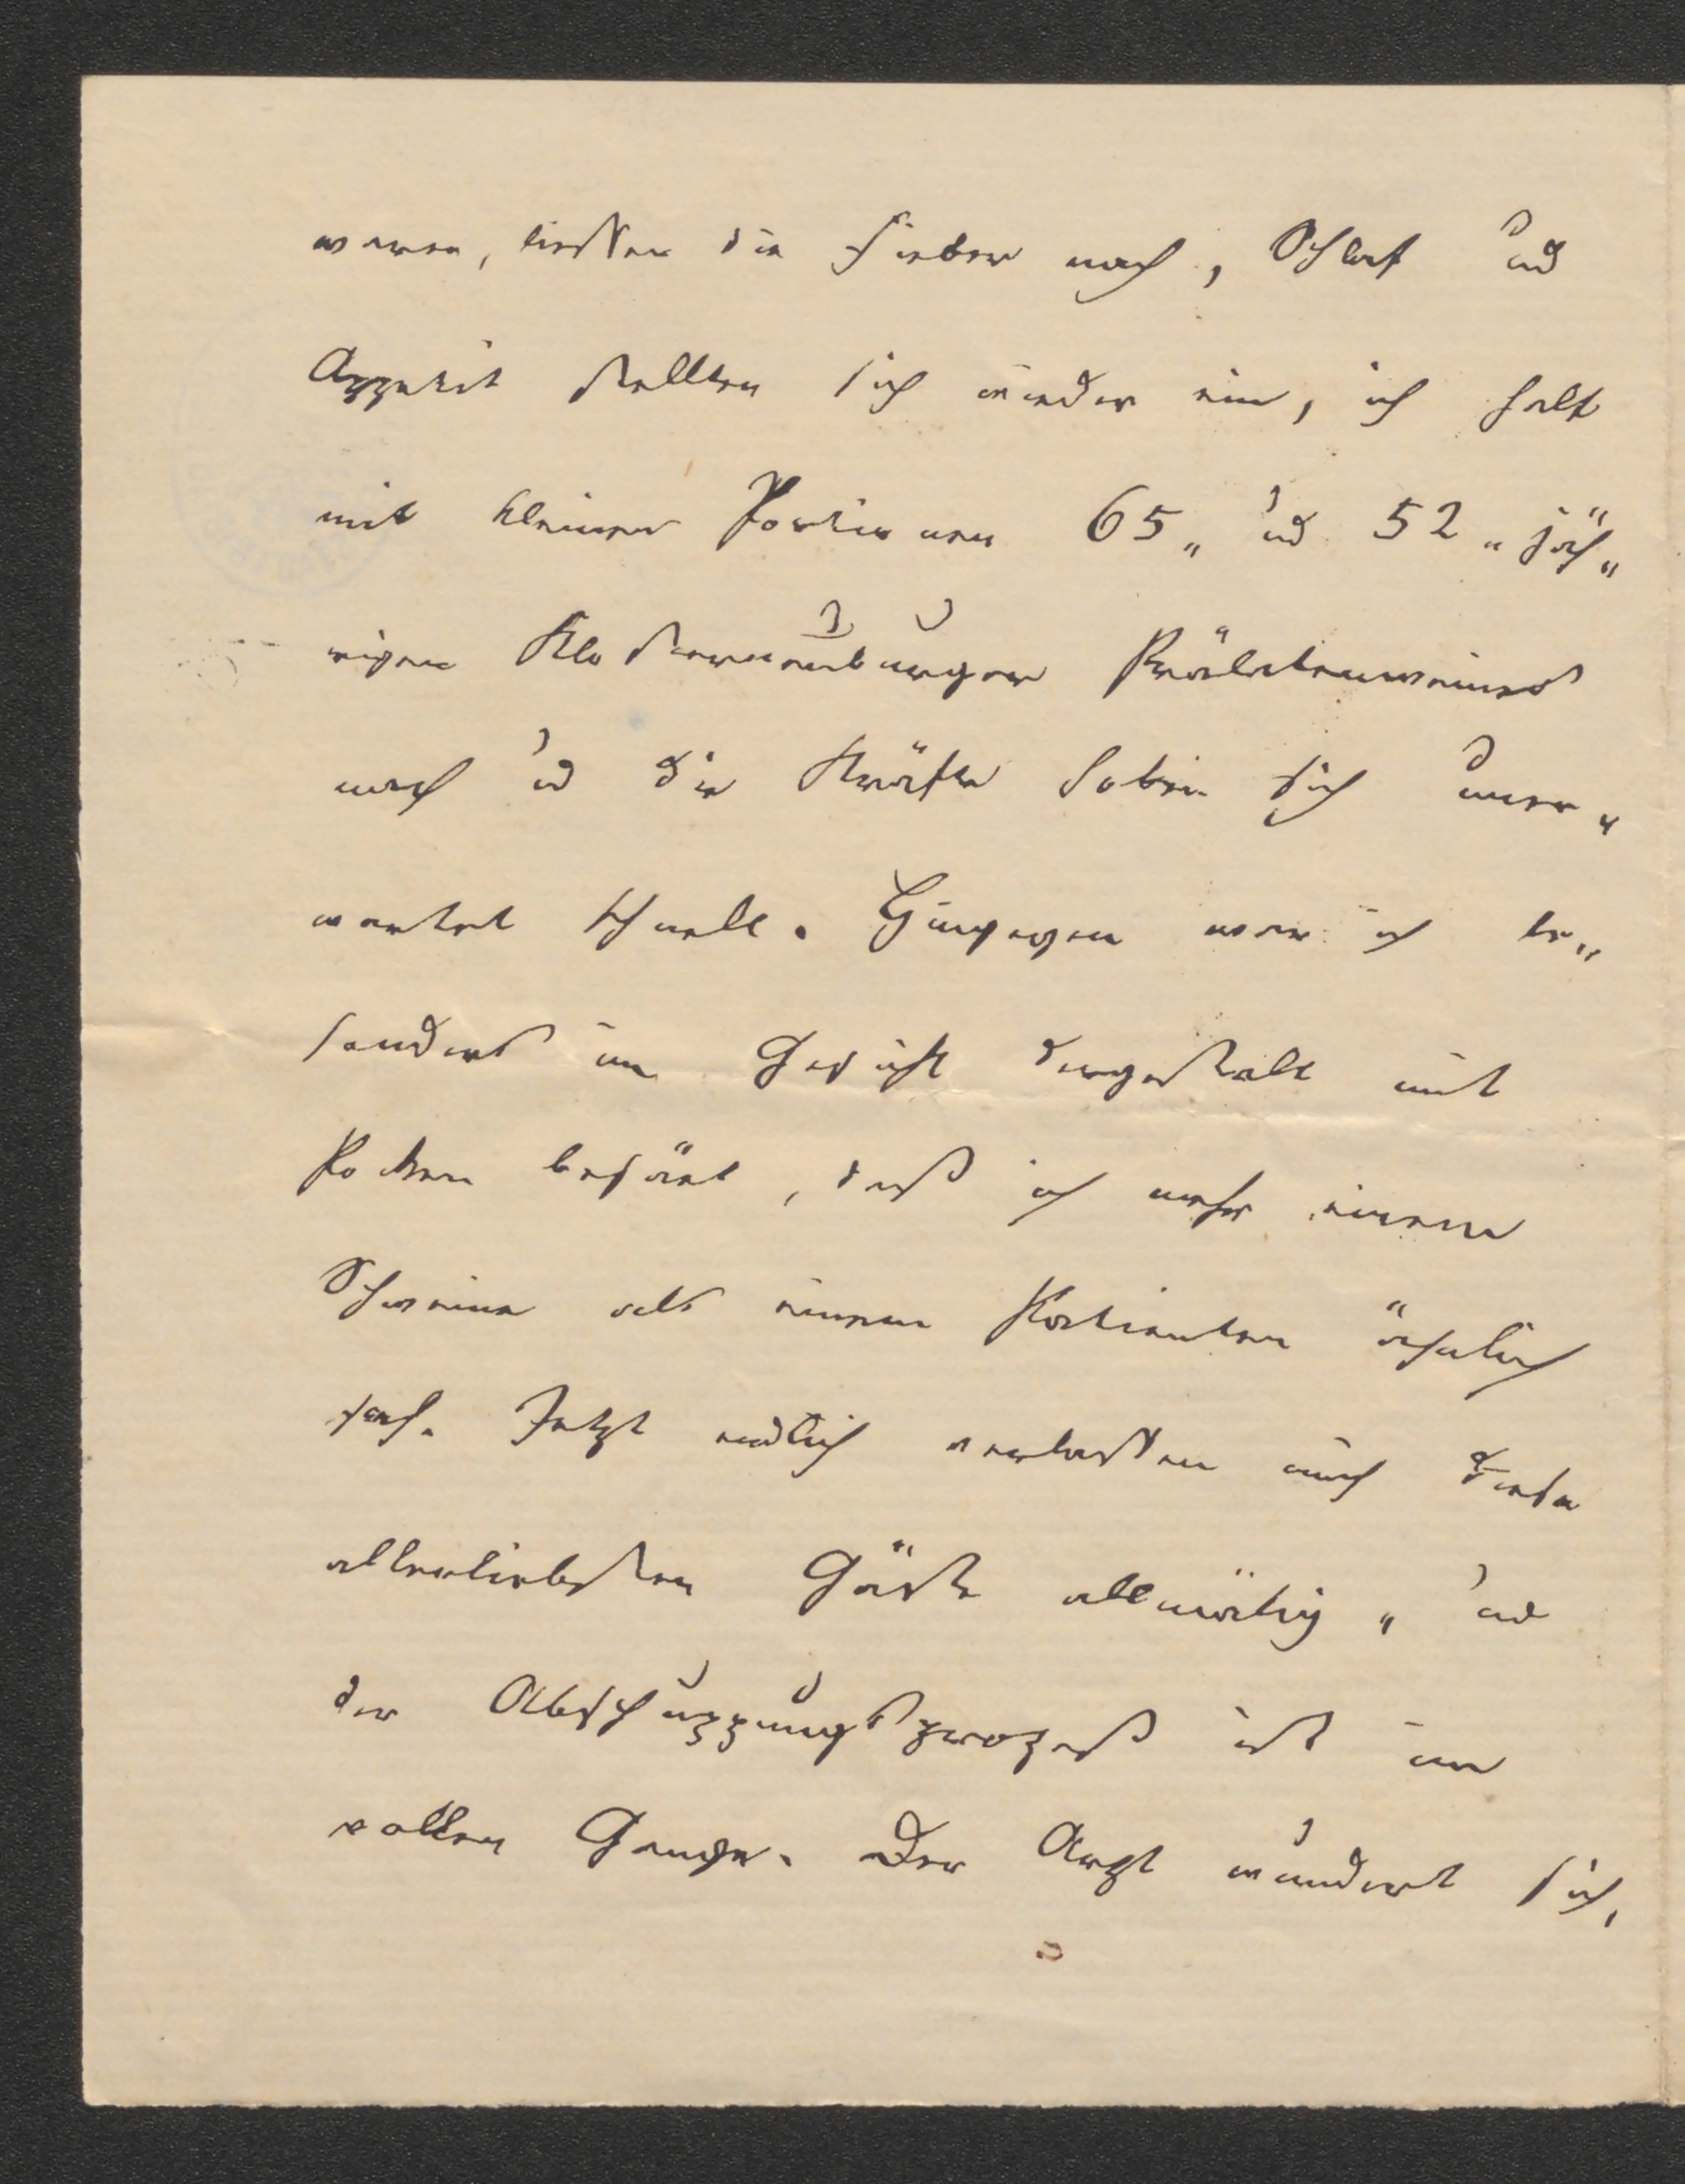 waren, ließen die Fieber nach, Schlaf und
Appetit stellten sich wieder ein, ich half
mit kleinen Portionen 65„ und 52„jäh„
rigen Klosterneuburger Prälatenweines
nach und die Kräfte hoben sich uner„
wartet schnell. Hingegen war ich be„
sonders im Gesicht dergestalt mit
Pocken besäet, daß ich mehr einem
Schweine als einem Patienten ähnlich
sah. Jetzt endlich verlassen mich diese
allerliebsten Gäste allmälig, und
der Abschuppungsprozeß ist im
vollen Gange. Der Arzt wundert sich,